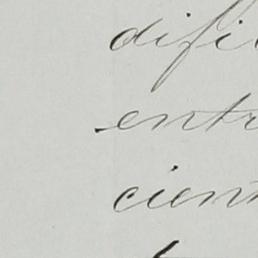 difi
entr
cien